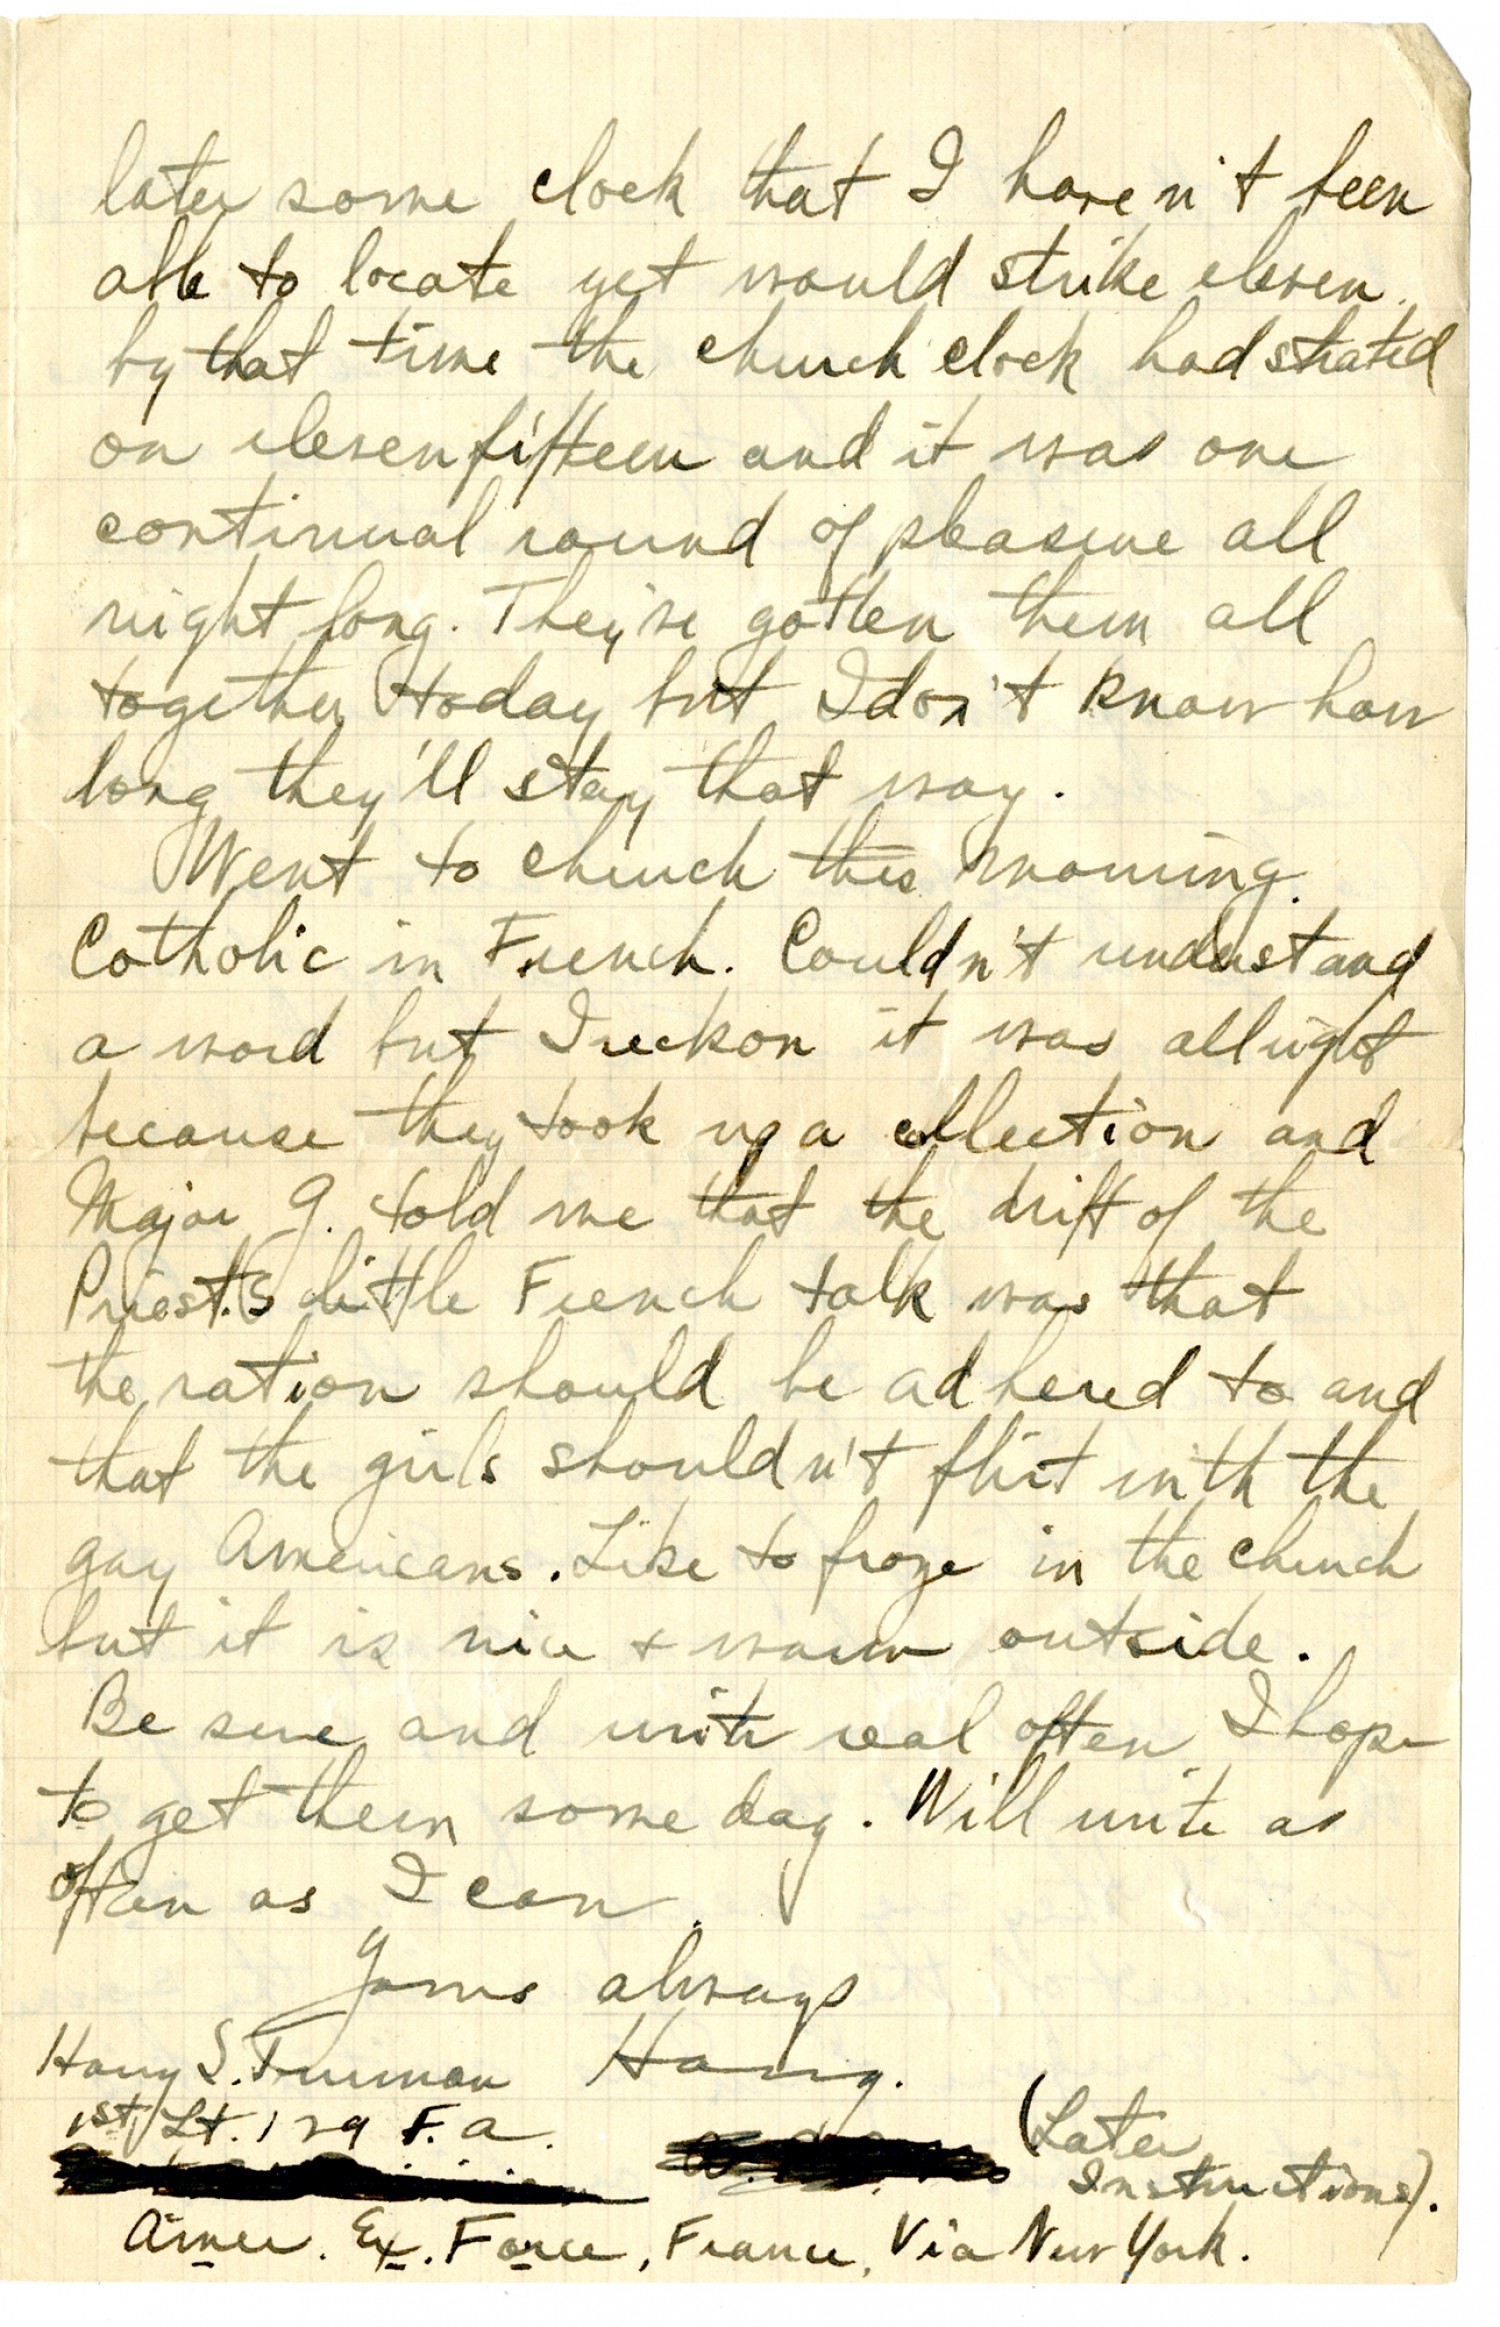 later some clock that I haven't been
able to locate yet would strike eleven.
by that time the church clock had strated
on eleven fifteen and it was one
continual round of pleasure all
night long. They've gotten them all
together today but I don't know how
long they'll stay that way.
Went to church this morning.
Catholic in French. Couldn't understand
a word but I reckon it was allright
because they took up a collection and
Major G. told me that the drift of the
Priest's little French talk was that
the ration should be adhered to and
that the girls shouldn't flirt with the
gay Americans. Like to froze in the church
but it is nice + warm outside.
Be sure and write real often I hope
to get them some day. Will write as
often as I can.
Yours always
Harry.
Harry S. Truman
1st Lt. 129 F.A.
(Later
Instructions).
Amer. Ex. Force, France, Via New York.